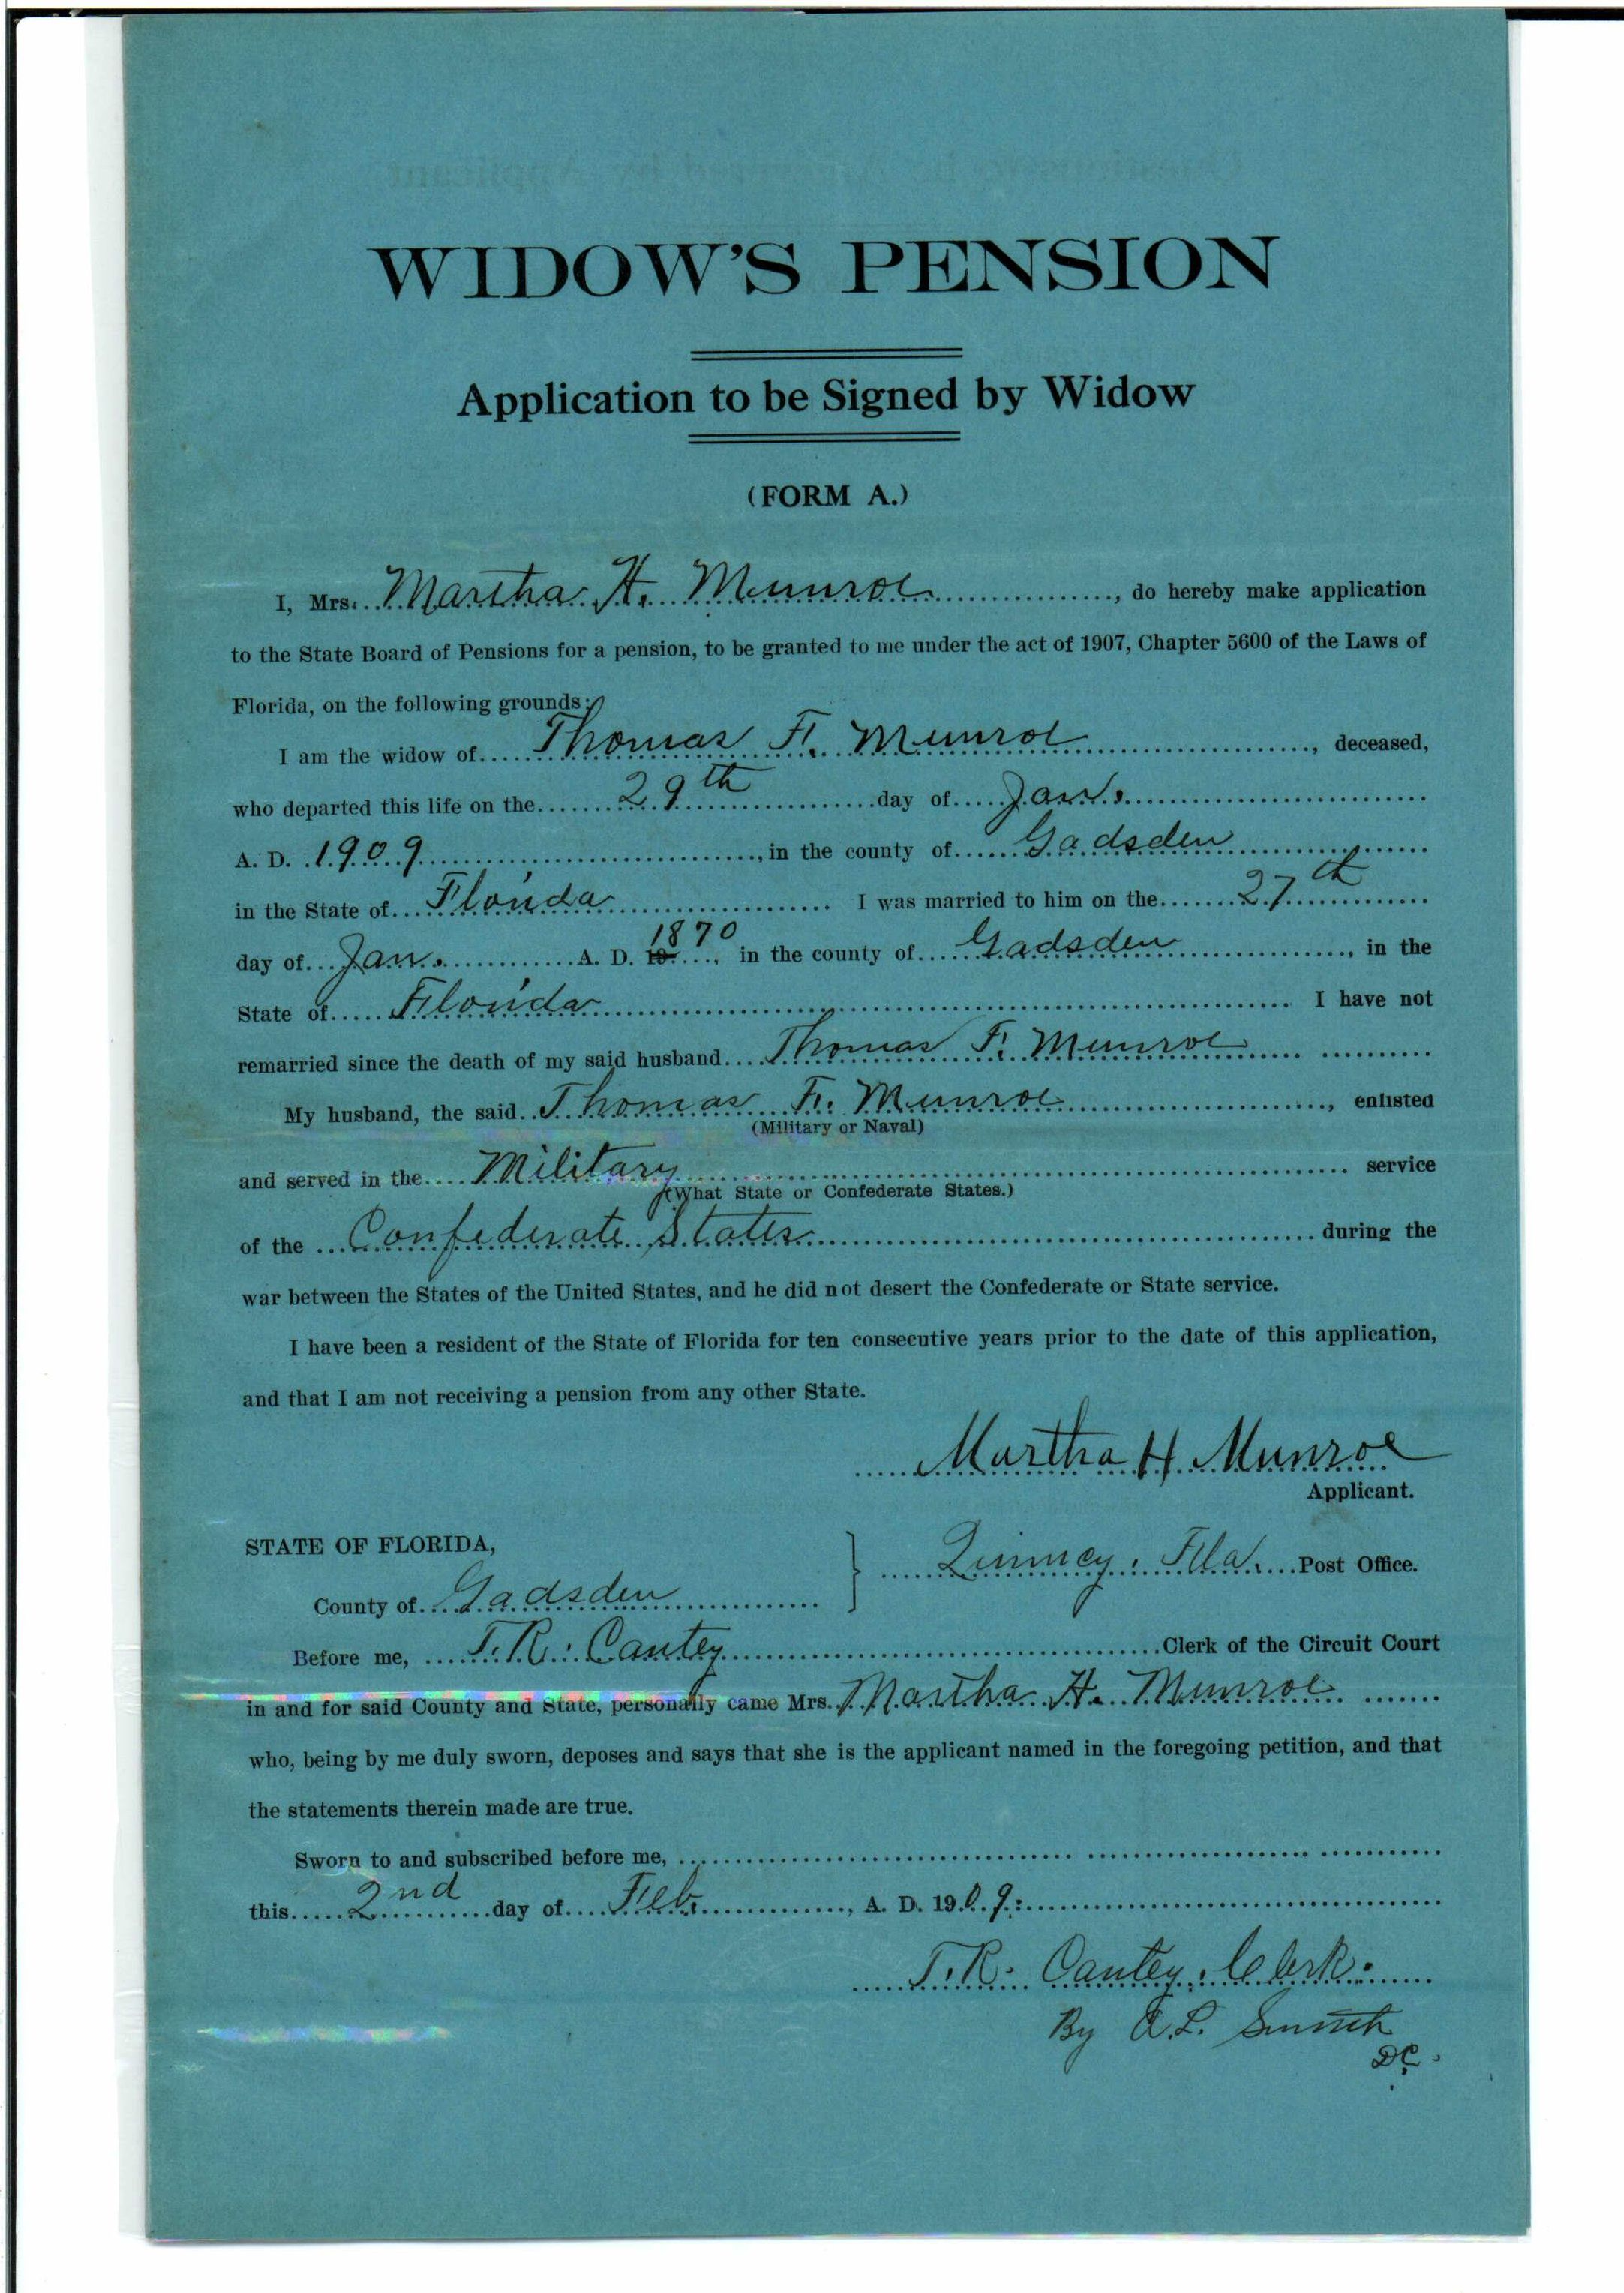 WIDOW'S PENSION
Application to be Signed by Widow
(FORM A.)
I, Mrs. Martha H. Munroe, do hereby make application
to the State Board of Pensions for a pension, to be granted to me under the act of 1907, Chapter 5600 of the Laws of
Florida, on the following grounds:
I am the widow of Thomas F. Munroe, deceased,
who departed this life on the 29th day of Jan.
A. D. 1909, in the county of Gadsden
in the State of Florida I was married to him on the 27th
day of Jan. A. D. 19 1870, in the county of Gadsden, in the
State of Florida I have not
remarried since the death of my said husband Thomas F. Munroe
My husband, the said Thomas F. Munroe, enlisted
(Military or Naval)
and served in the Military service
(What State or Confederate States.)
of the Confederate States during the
war between the States of the United States, and he did not desert the Confederate or State service.
I have been a resident of the State of Florida for ten consecutive years prior to the date of this application,
and that I am not receiving a pension from any other State.
Martha H Munroe
Applicant.
STATE OF FLORIDA,
Quincy, Fla. Post Office.
County of Gadsden
Before me, T. R. Cantey Clerk of the Circuit Court
in and for said County and State, personally came Mrs. Martha H. Munroe
who, being by me duly sworn, deposes and says that she is the applicant named in the foregoing petition, and that
the statements therein made are true.
Sworn to and subscribed before me,
this 2nd day of Feb., A. D. 1909.
T. R. Cantey, Clerk.
By A. L. Smith
D.C.